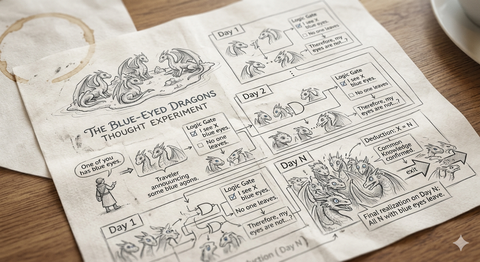 THE BLUE-EYED DRAGONS
THOUGHT EXPERIMENT
One of you
has blue eyes.
Traveler
announcing
some blue agons.
Logic Gate
I see X
blue eyes.
No one
leaves.
Day 1
Logic Gate
I see X
blue eyes.
No one leaves
Therefore, my
eyes are not...
Day 2
Logic Gate
I see X
blue eyes.
No one leaves
Therefore, my
eyes are not...?
Day 1
Logic Gate
I see X
blue eyes.
No one leaves.
Therefore, my
eyes are not...
Day N
Deduction: X = N
Common
Knowledge
confirmed
exit
Final realization on Day N:
All N with blue eyes leave.
(Day N